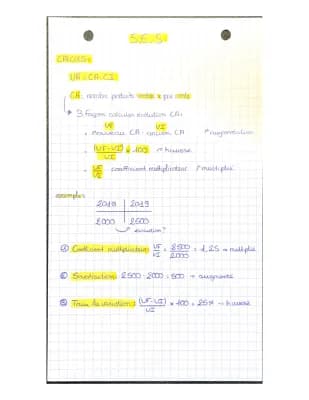 S.E.S
CALCULS:
VA = CA - CI
CA: nombre produits vendus x prix vente
3 Façon calculer évolution CA:
VF VI
• nouveau CA - ancien CA → augmentation
• (VF-VI)/VI x 100 → hausse
• VF/VI coefficient multiplicateur → multiplié
exemple:
2018 | 2019
2000 | 2500
évolution?
① Coefficient multiplicateur: VF/VI = 2500/2000 = 1,25 → multiplié
② Soustraction: 2500 - 2000 = 500 → augmenté
③ Taux de variation: (VF-VI)/VI x 100 = 25% → hausse